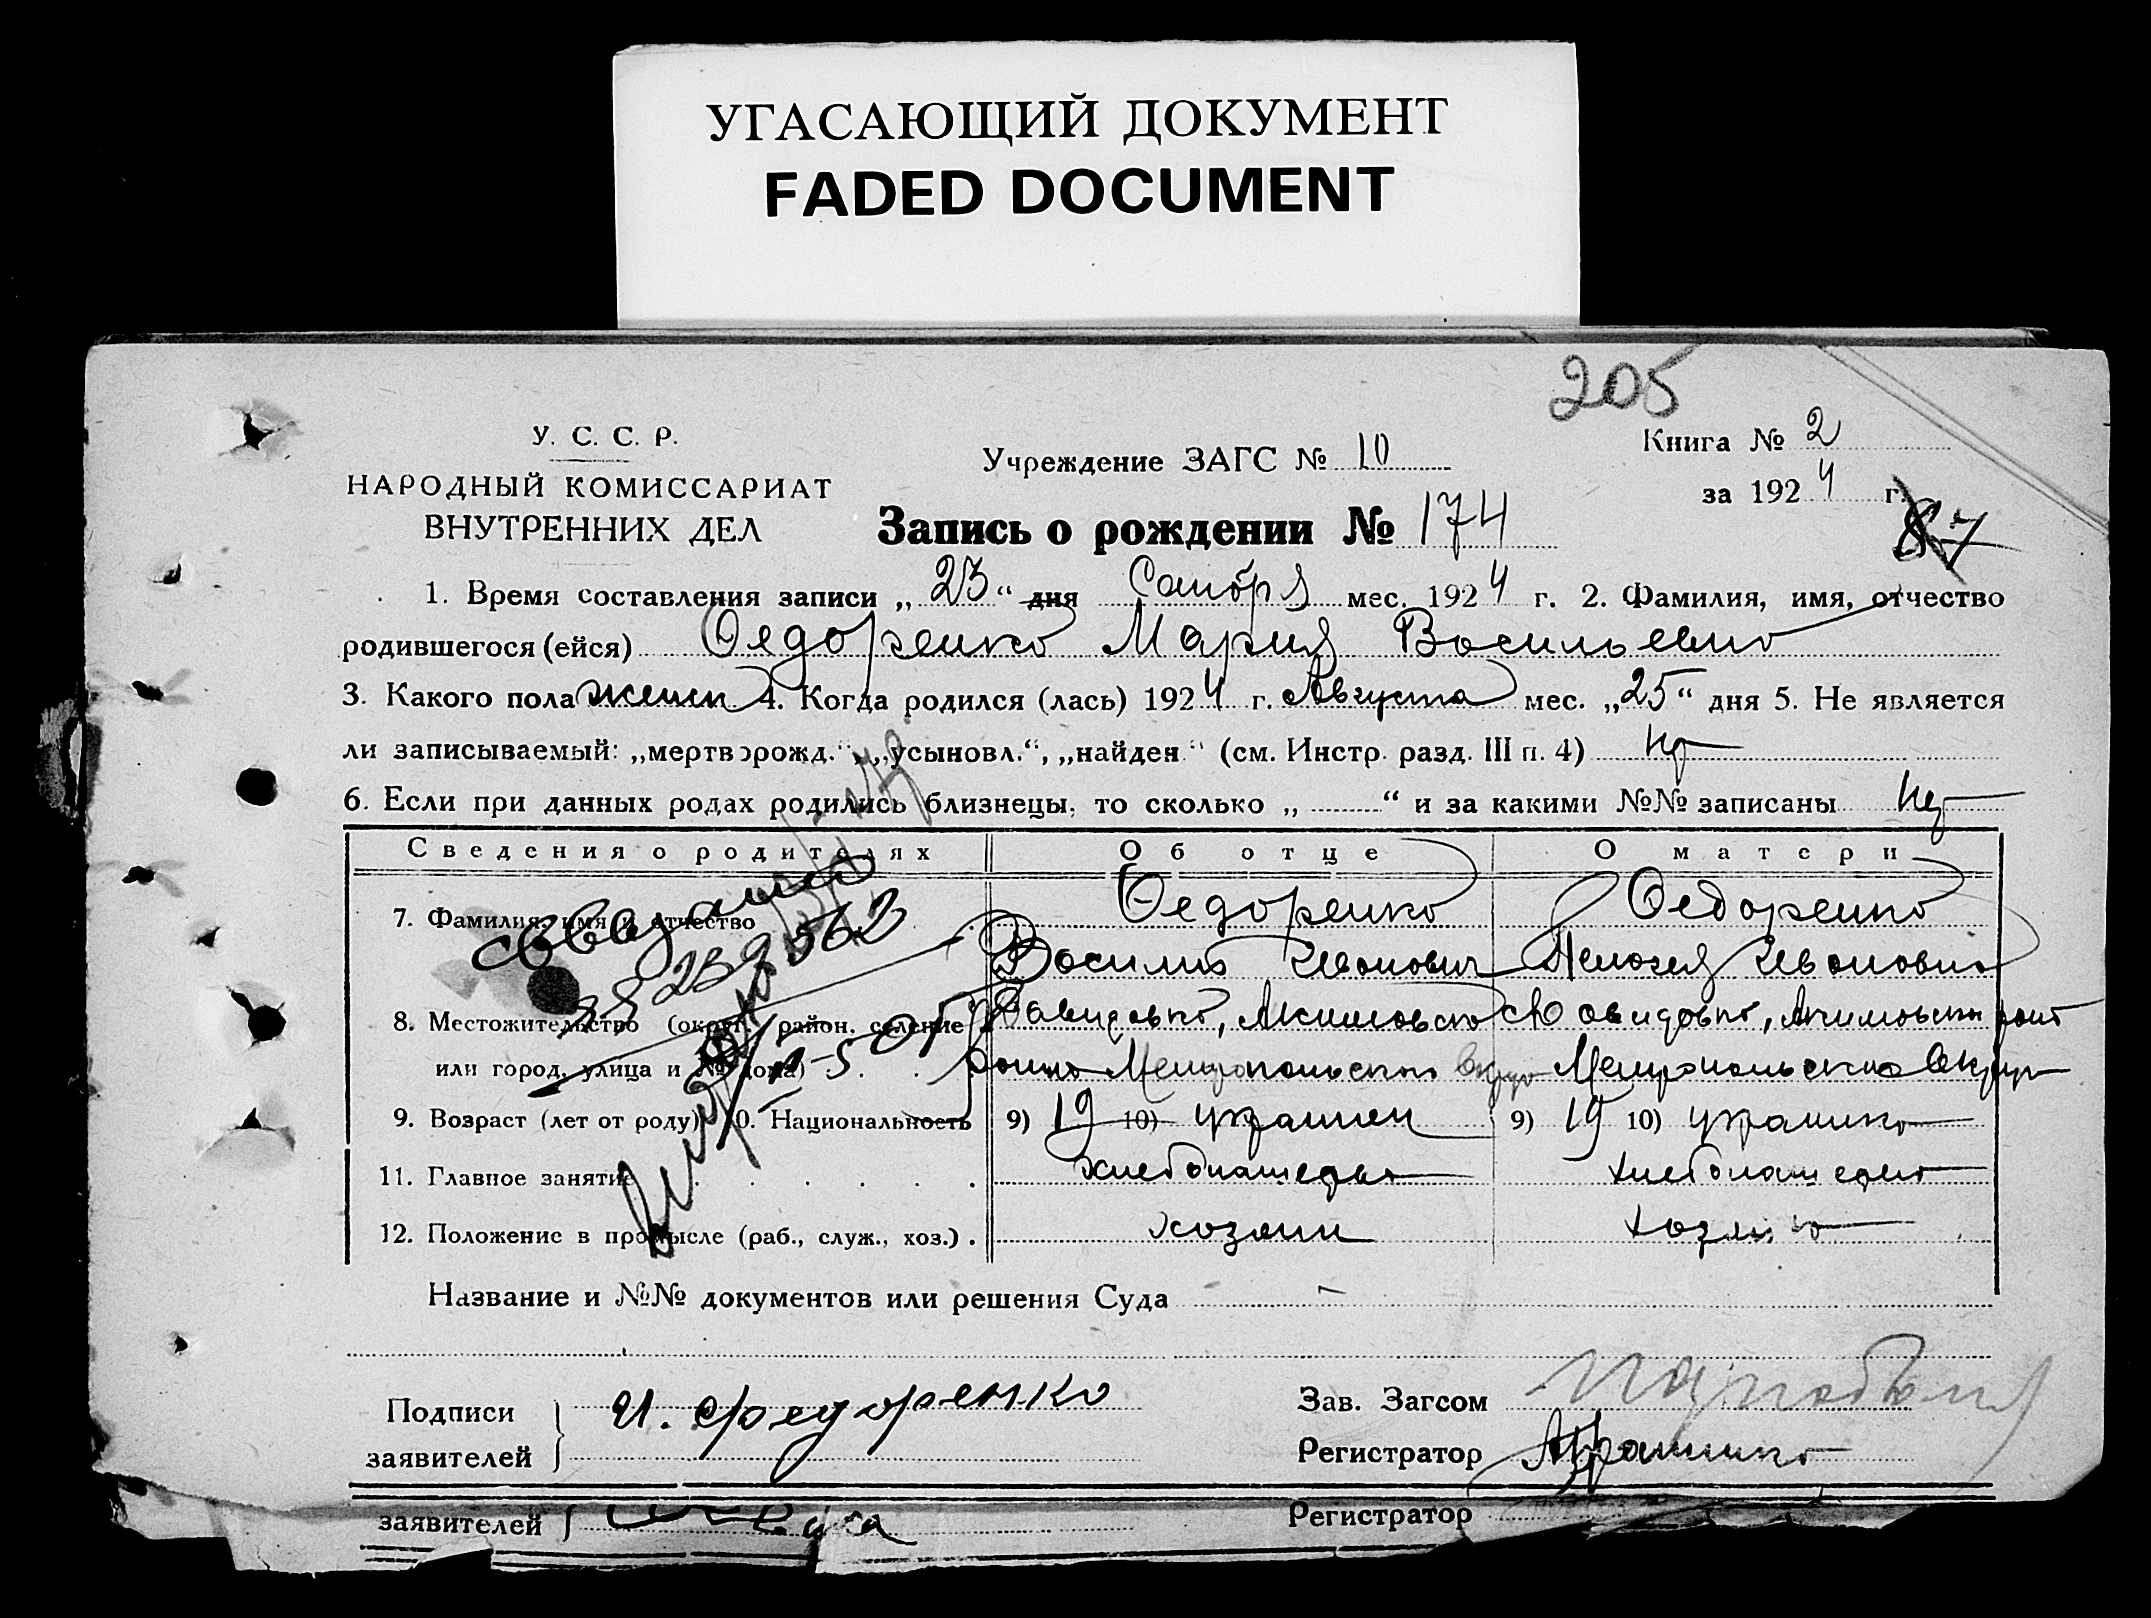 УГАСАЮЩИЙ ДОКУМЕНТ
FADED DOCUMENT
205
У. С. С. Р.
НАРОДНЫЙ КОМИССАРИАТ
ВНУТРЕННИХ ДЕЛ
Учреждение ЗАГС № 10
Книга № 2
за 1924 г.
87
Запись о рождении № 174
1. Время составления записи „ 23 “ дня мес. 1924 г. 2. Фамилия, имя, отчество
родившегося (ейся) Федоренко Мария Васильевна
3. Какого пола женск 4. Когда родился (лась) 1924 г. Августа мес. „ 25 “ дня 5. Не является
ли записываемый: „мертворожд.“, „усыновл.“, „найден“ (см. Инстр. разд. III п. 4)
6. Если при данных родах родились близнецы, то сколько „ “ и за какими №№ записаны
Сведения о родителях Об отце О матери
7. Фамилия, имя и отчество Федоренко Федоренко
Василий Иванович Ивановна
8. Местожительство (округ, район, селение Давидовка, Акимовско Давидовка, Акимовски
или город, улица и № дома) Мелитопольского Округа Мелитопольского Округа
9. Возраст (лет от роду) 10. Национальность 9) 19 10) украинец 9) 19 10) украинка
11. Главное занятие хлебопашество хлебопашество
12. Положение в промысле (раб., служ., хоз.) хозяин
Название и №№ документов или решения Суда –
Подписи
заявителей
И. Федоренко
Зав. Загсом
Регистратор
заявителей
Регистратор